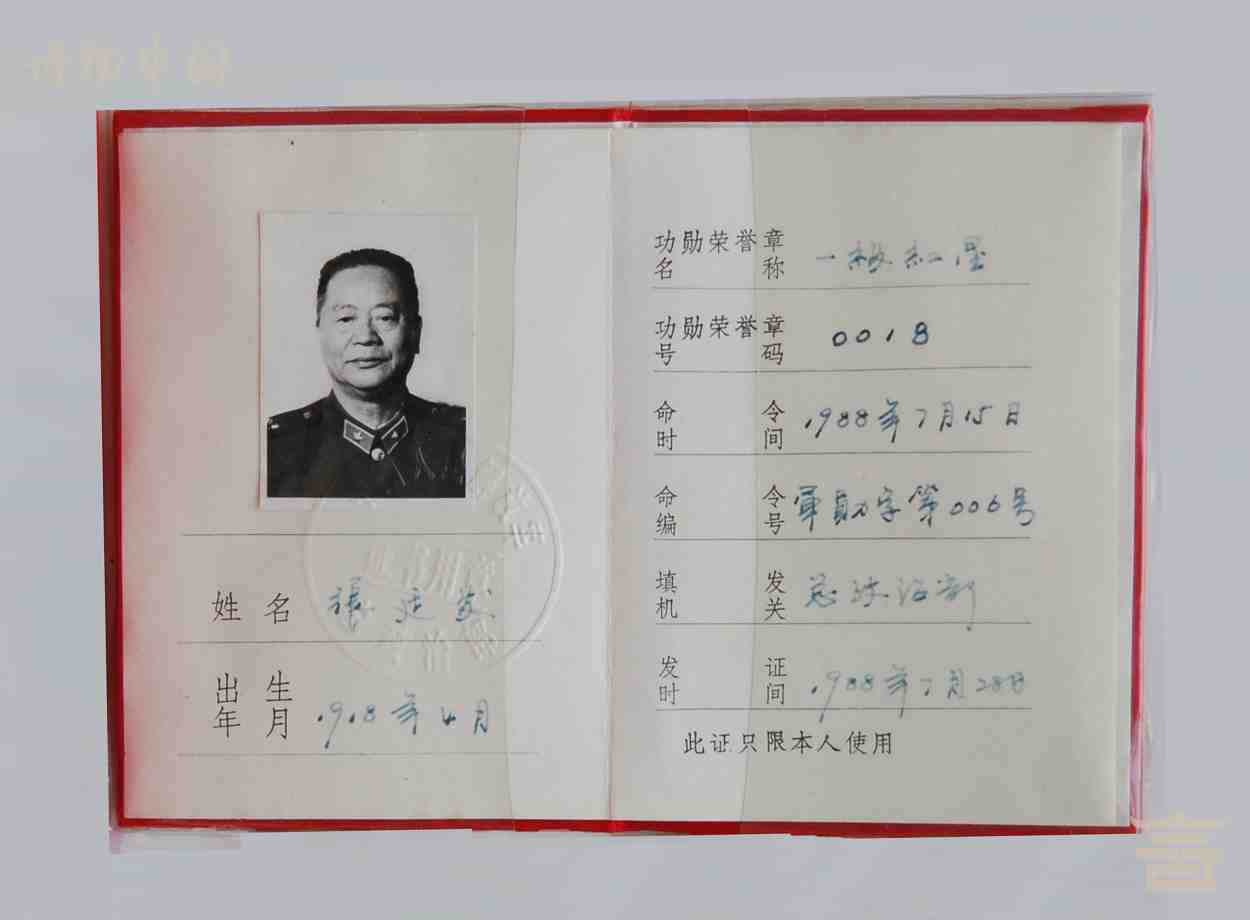 姓名 張廷发
出生
年月 1918年4月
功勋荣誉章
名称 一级红星
功勋荣誉章
号码 0018
命令
时间 1988年7月15日
命令
编号 军勋字第006号
填发
机关 总政治部
发证
时间 1988年7月28日
此证只限本人使用